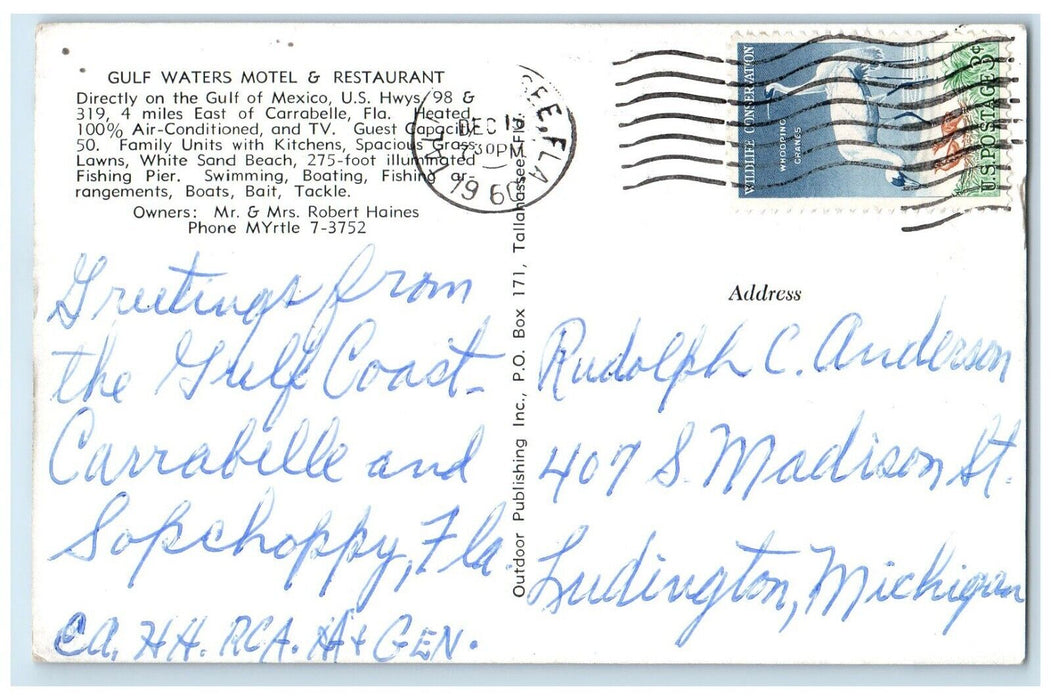 GULF WATERS MOTEL & RESTAURANT
Directly on the Gulf of Mexico, U.S. Hwys 98 &
319, 4 miles East of Carrabelle, Fla. Heated,
100% Air-Conditioned, and TV. Guest Capacity
50. Family Units with Kitchens, Spacious Grass
Lawns, White Sand Beach, 275-foot illuminated
Fishing Pier. Swimming, Boating, Fishing ar-
rangements, Boats, Bait, Tackle.
Owners: Mr. & Mrs. Robert Haines
Phone MYrtle 7-3752
Greetings from
the Gulf Coast-
Carrabelle and
Sopchoppy, Fla.
CA. HH. RCA. HA & GEN.
Outdoor Publishing Inc., P.O. Box 171, Tallahassee, Fla.
FLA
DEC
30PM
1960
WILDLIFE CONSERVATION
WHOOPING
CRANES
U.S. POSTAGE 3¢
Address
Rudolph C. Anderson
407 S. Madison St.
Ludington, Michigan